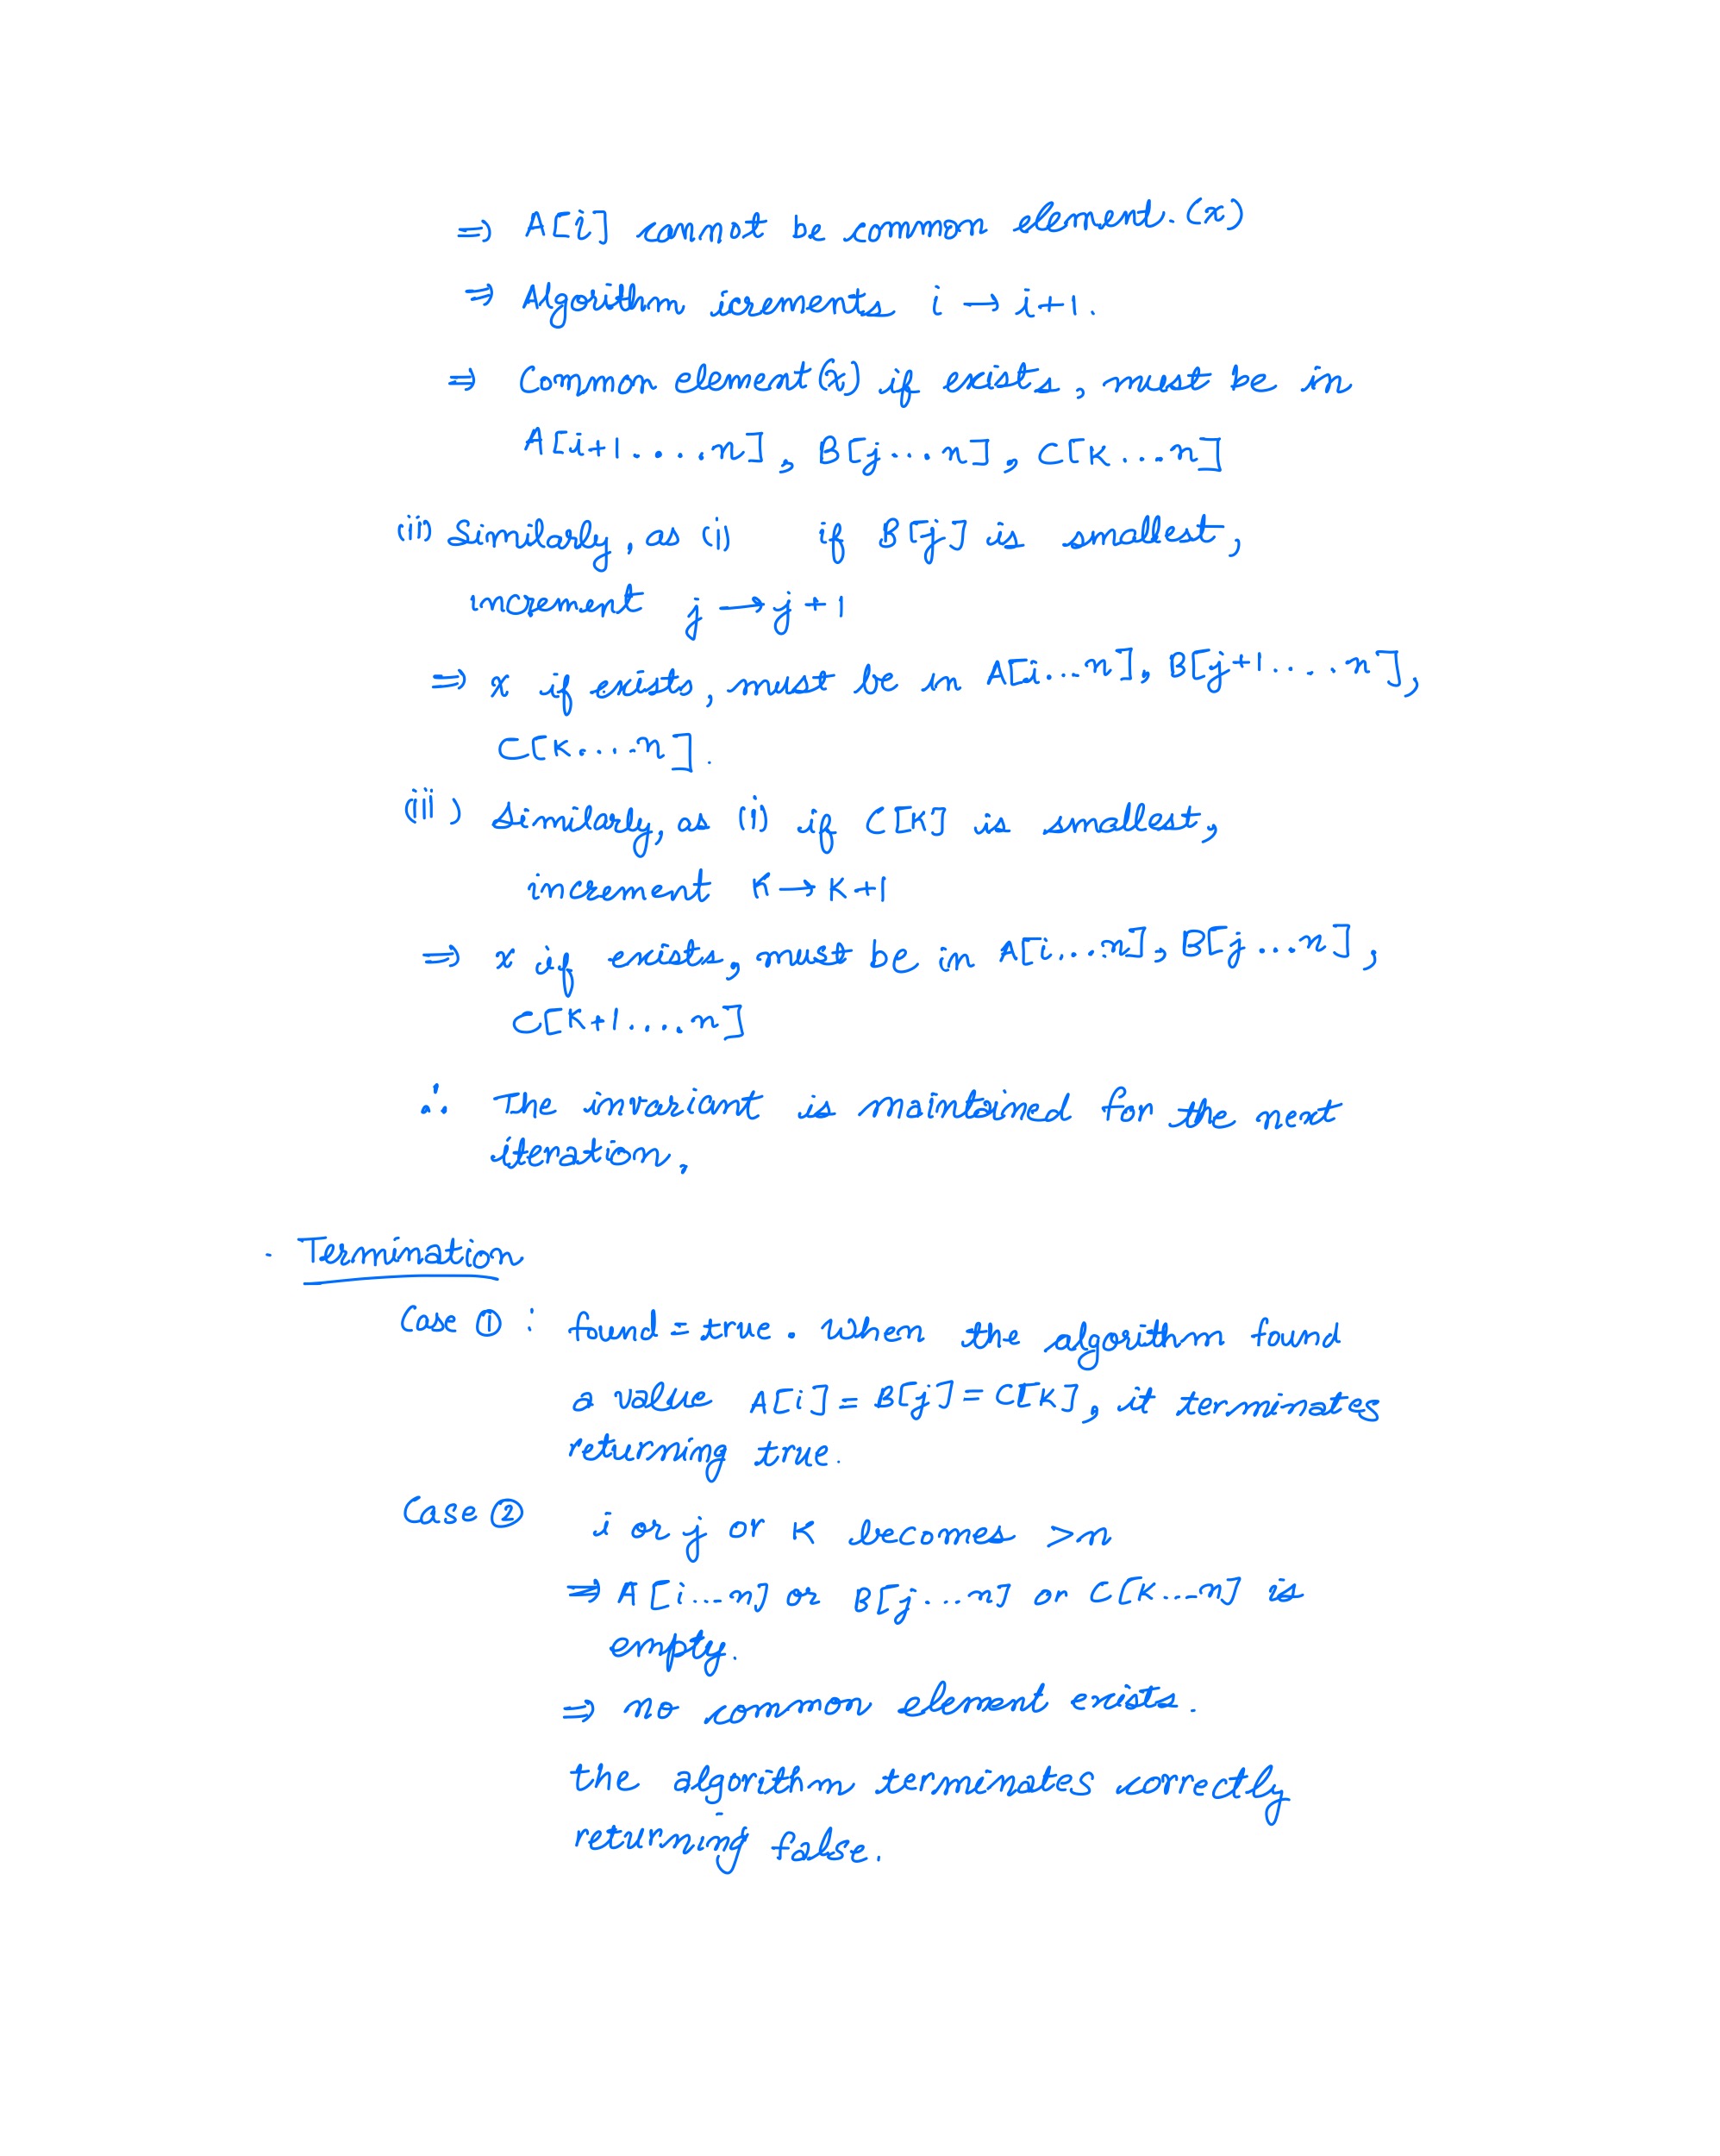 ⇒ A[i] cannot be common element. (x)
⇒ Algorithm icrements i → i+1.
⇒ Common element (x) if exists, must be in
A[i+1....n], B[j...n], C[K...n]
(ii) Similarly, as (i) if B[j] is smallest,
increment j → j+1
⇒ x if exists, must be in A[i...n], B[j+1....n],
C[K....n].
(iii) Similarly, as (i) if C[K] is smallest,
increment K → K+1
⇒ x if exists, must be in A[i...n], B[j...n],
C[K+1....n]
∴ The invariant is maintained for the next
iteration.
· Termination
Case ① : found = true. When the algorithm found
a value A[i] = B[j] = C[K], it terminates
returning true.
Case ② i or j or K becomes >n
⇒ A[i...n] or B[j...n] or C[K...n] is
empty.
⇒ no common element exists.
the algorithm terminates correctly
returning false.